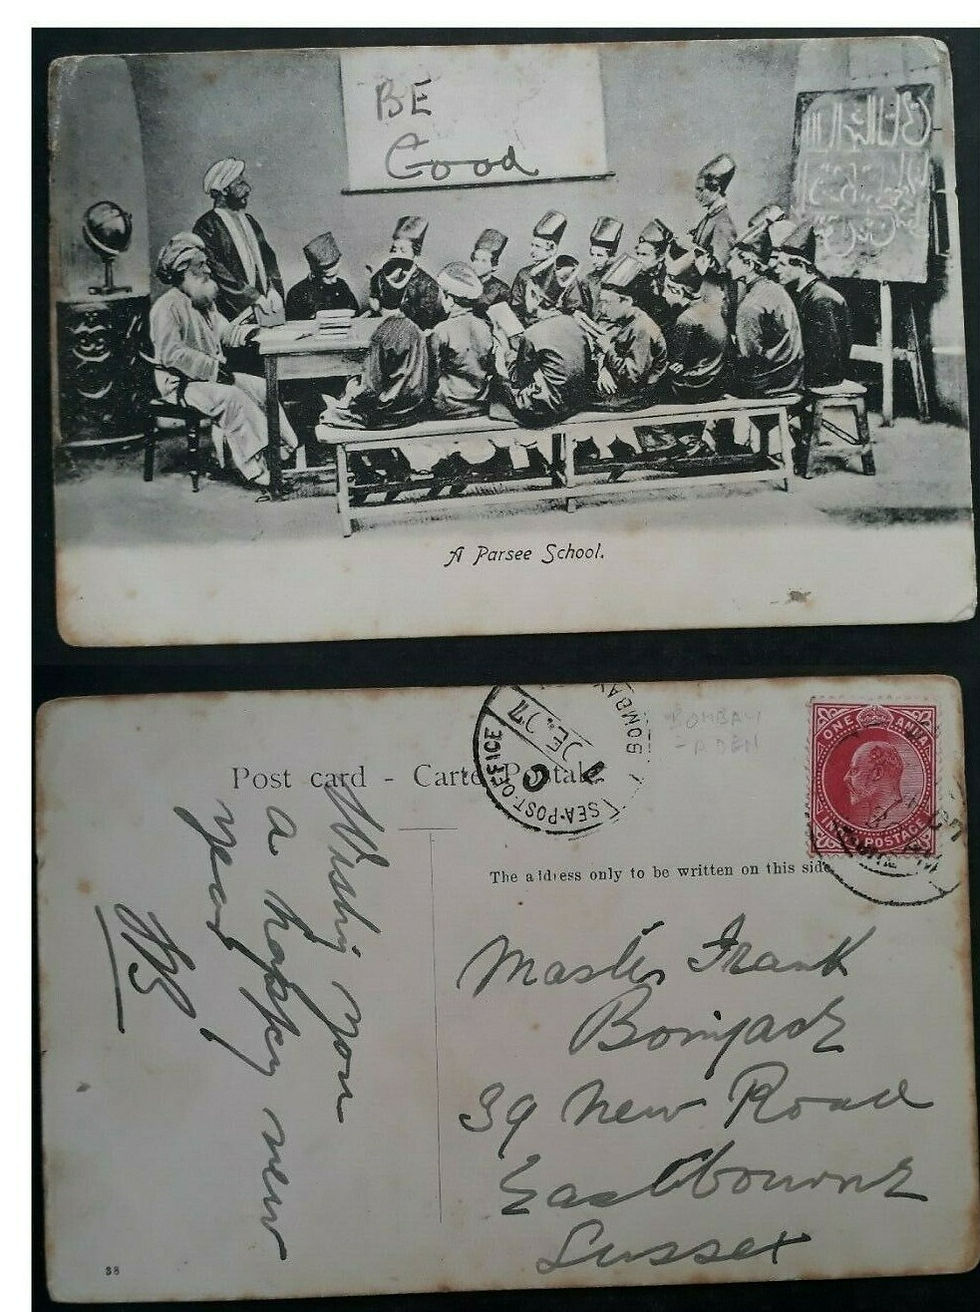 BE
Good
A Parsee School.
Post card - Carte Postale
SEA POST OFFICE
BOMBAY
C
DE 07
BOMBAY
ADEN
ONE ANNA
INDIA POSTAGE
The address only to be written on this side
Wishing you
a happy new
year
Master Frank
39 New Road
Eastbourne
Sussex
38